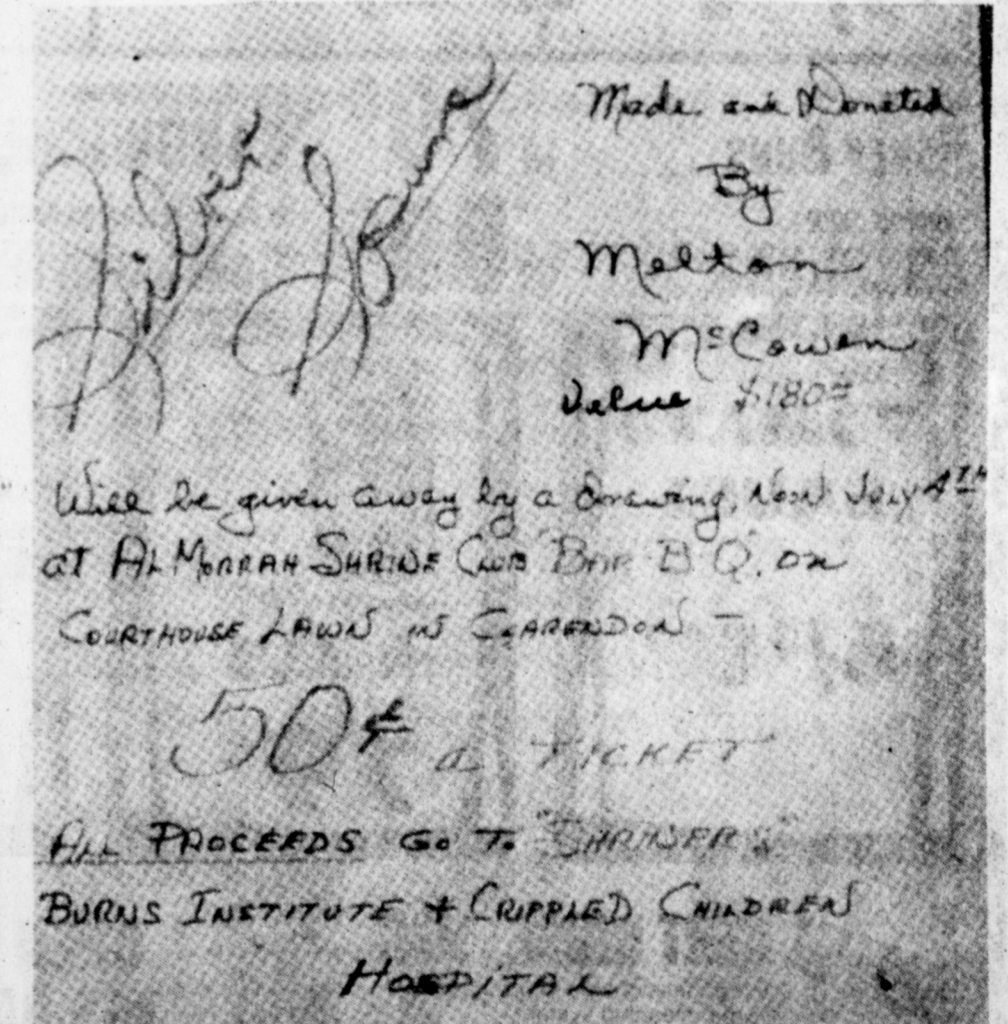 Silver Spurs
Made and Donated
By
Melton
McCowen
Value $180
Will be given away by a drawing, Noon July 4TH
at AL MORRAH SHRINE CLUB BAR B Q. on
COURTHOUSE LAWN IN CLARENDON –
50¢ a TICKET
ALL PROCEEDS GO TO "SHRINERS"
BURNS INSTITUTE + CRIPPLED CHILDREN
HOSPITAL